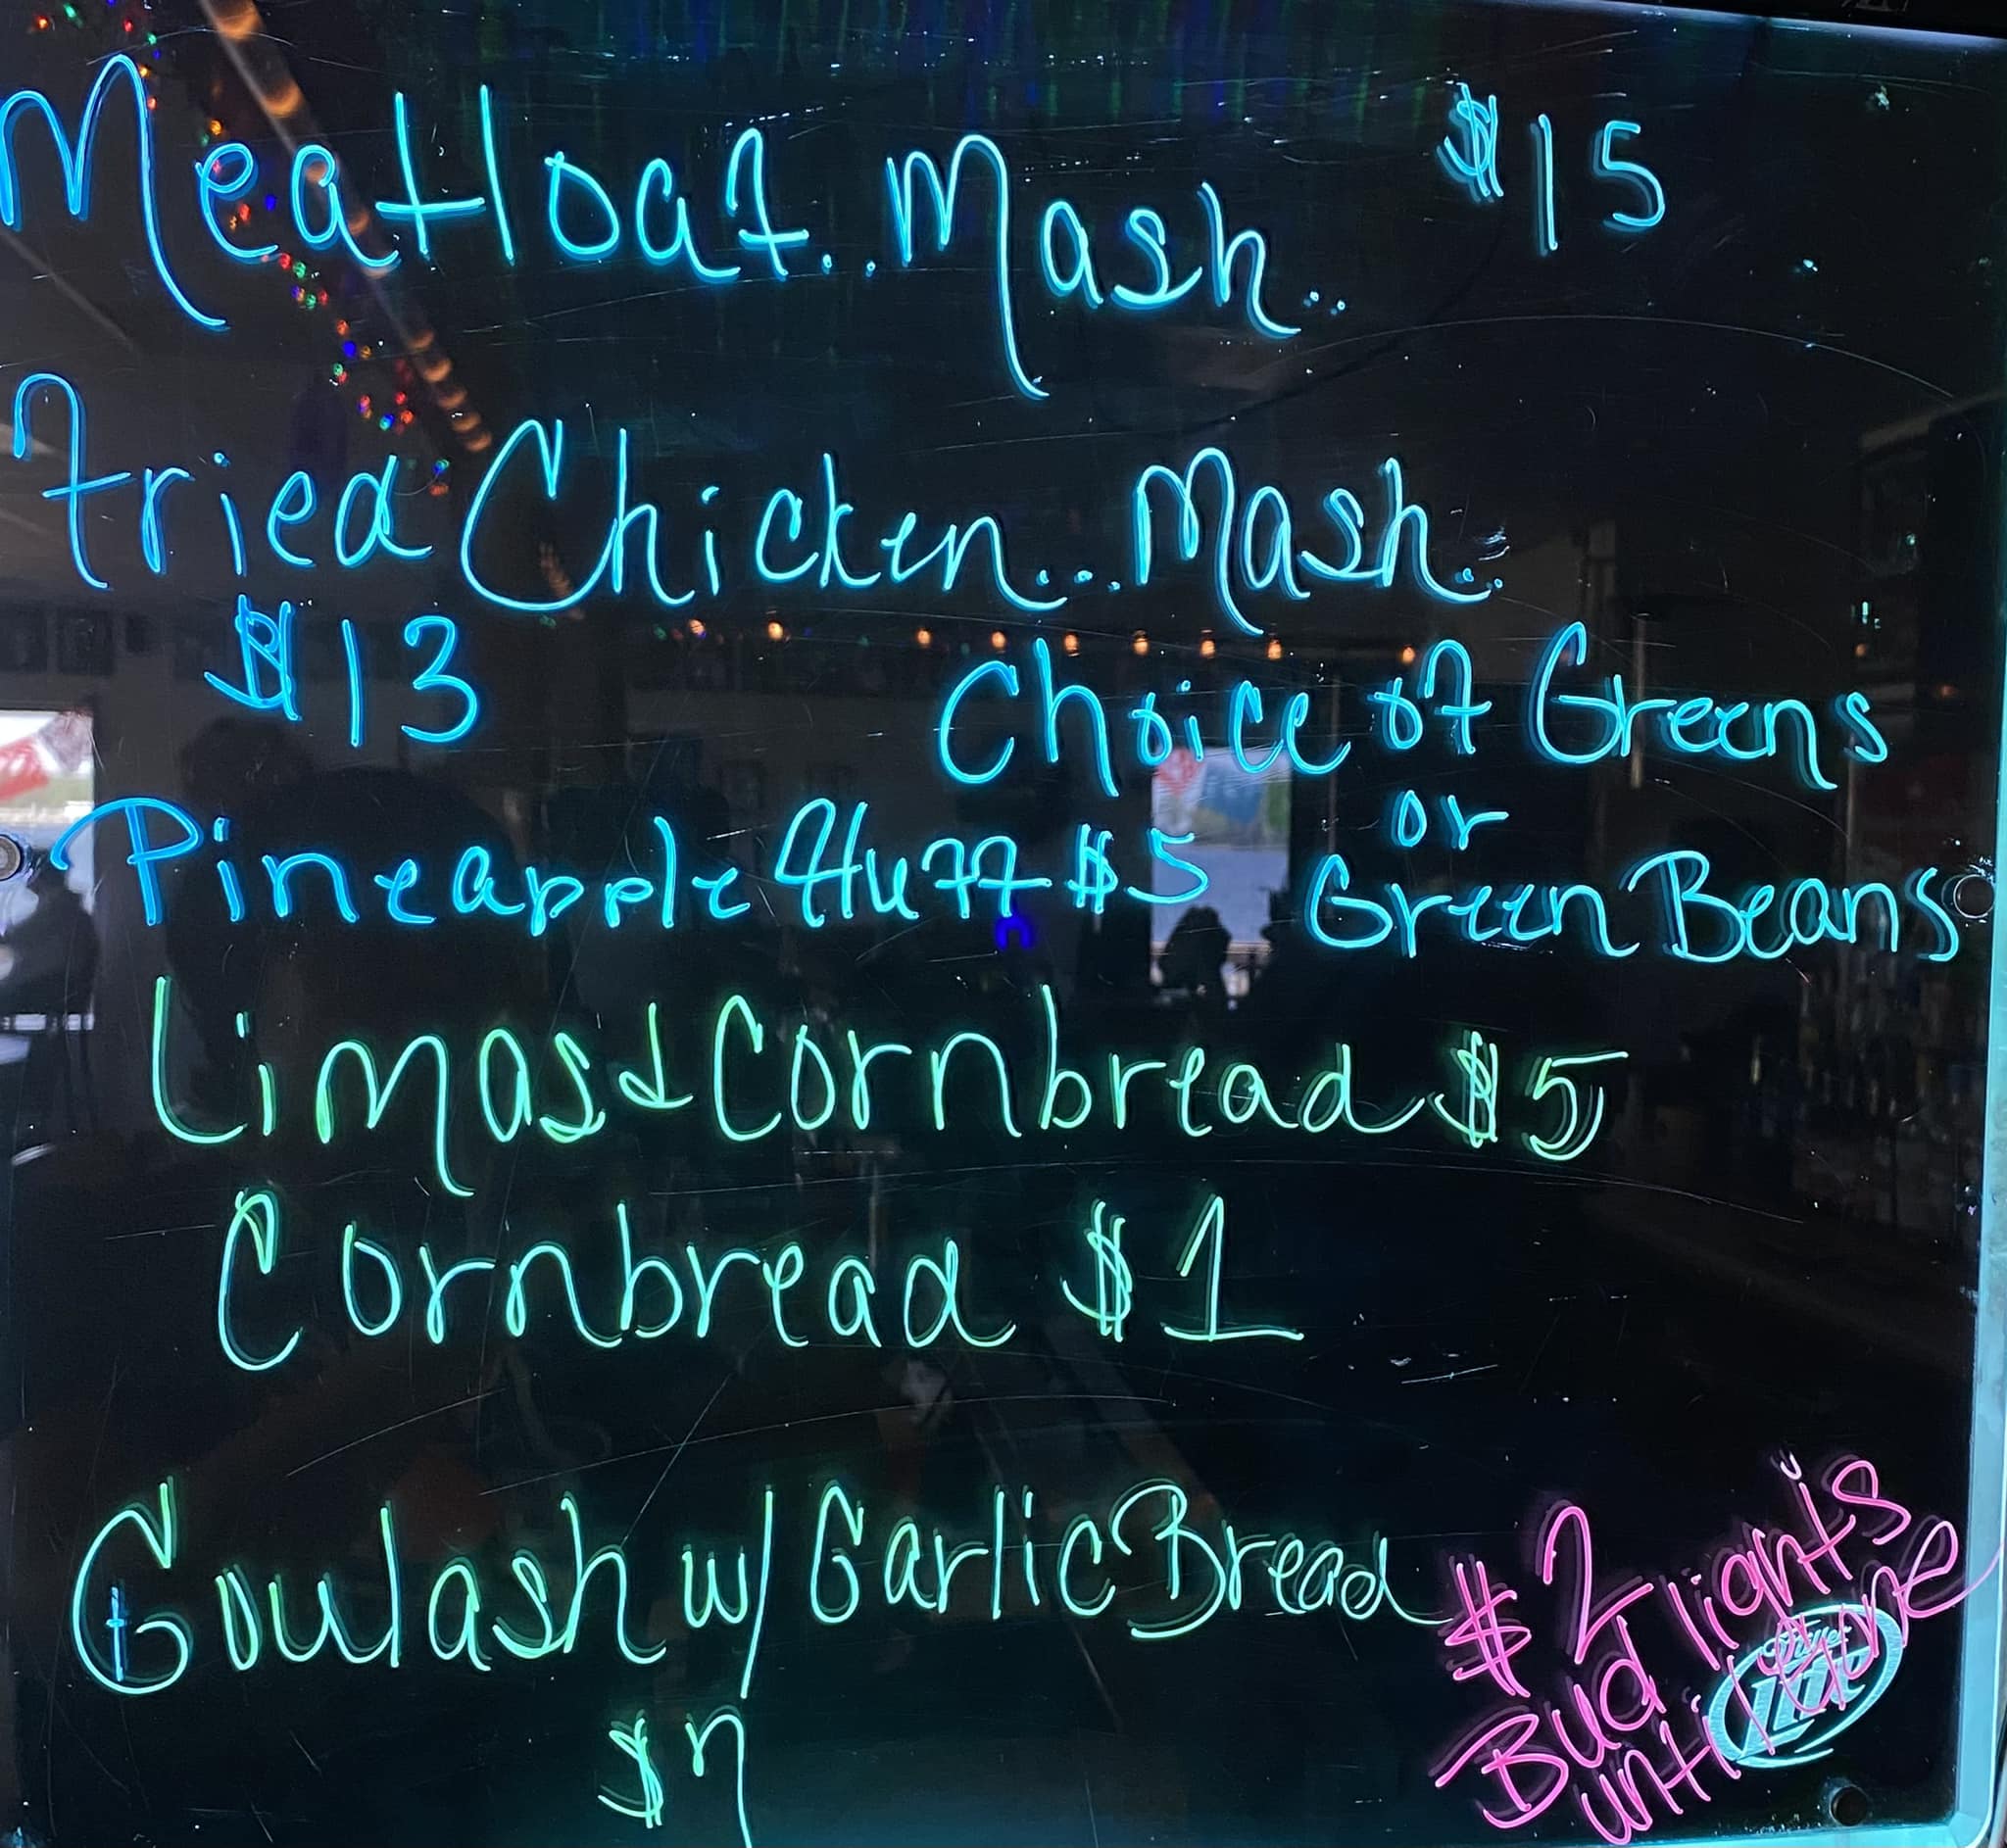 Meatloaf..Mash.. $15
Fried Chicken...Mash..
$13 Choice of Greens
or
Pineapple fluff $5 Green Beans
Limas & Cornbread $5
Cornbread $1
Goulash w/ Garlic Bread
$7
$2
Bud lights
until gone
Miller
Lite